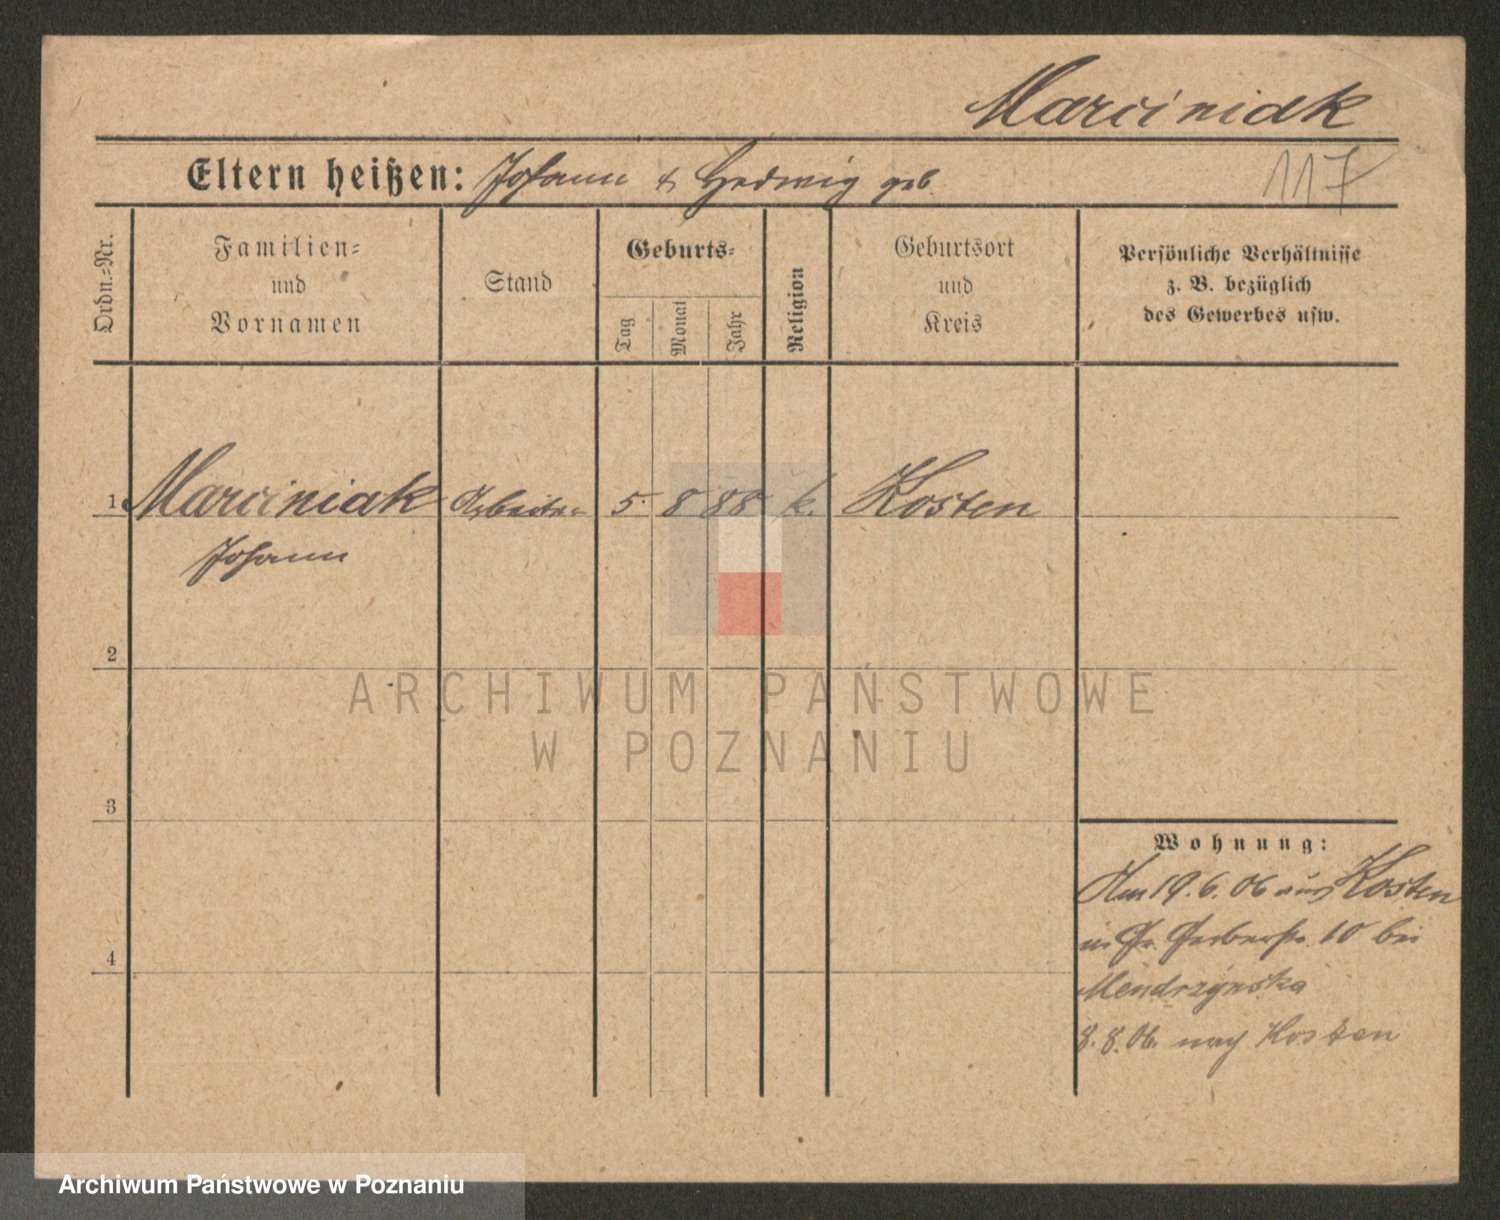 Marciniak
Eltern heißen: Johann & Hedwig geb.
117
Ordn.-Nr.
Familien-
und
Vornamen
Stand
Geburts-
Tag
Monat
Jahr
Religion
Geburtsort
und
Kreis
Persönliche Verhältnisse
z. B. bezüglich
des Gewerbes usw.
1 Marciniak Arbeiter 5. 8 88 k. Kosten
Johann
2
ARCHIWUM PAŃSTWOWE
W POZNANIU
3
Wohnung:
Am 19.6.06 aus Kosten
in Gr. Gerberstr. 10 bei
4
Mendrzynska
8.8.06. nach Kosten
Archiwum Państwowe w Poznaniu